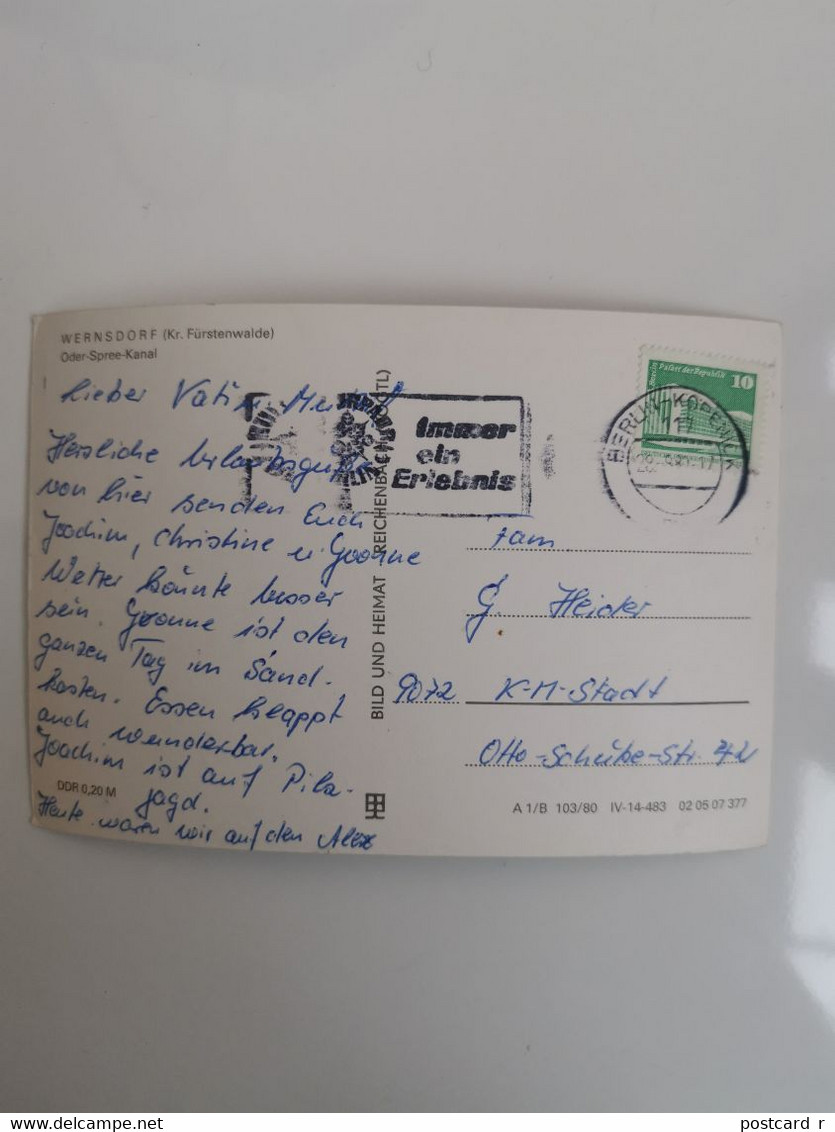 WERNSDORF (Kr. Fürstenwalde)
Oder-Spree-Kanal
Lieber Vati
Herzliche Urlaubsgrüße
von hier senden Euch
Joachim, Christine u. Yvonne
Wetter könnte besser
sein. Yvonne ist den
ganzen Tag im Sand-
kasten. Essen klappt
auch wunderbar.
Joachim ist auf Pilz-
jagd.
Heute waren wir auf den Alex
DDR 0,20 M
BILD UND HEIMAT REICHENBACH (VOGTL)
Immer
ein
Erlebnis
BERLIN-KÖPENICK
117
Berlin Palast der Republik
10
Fam
G. Heider
9072 K-M-Stadt
Otto-Schütze-Str. 42
A 1/B 103/80 IV-14-483 02 05 07 377
delcampe.net
postcard_r